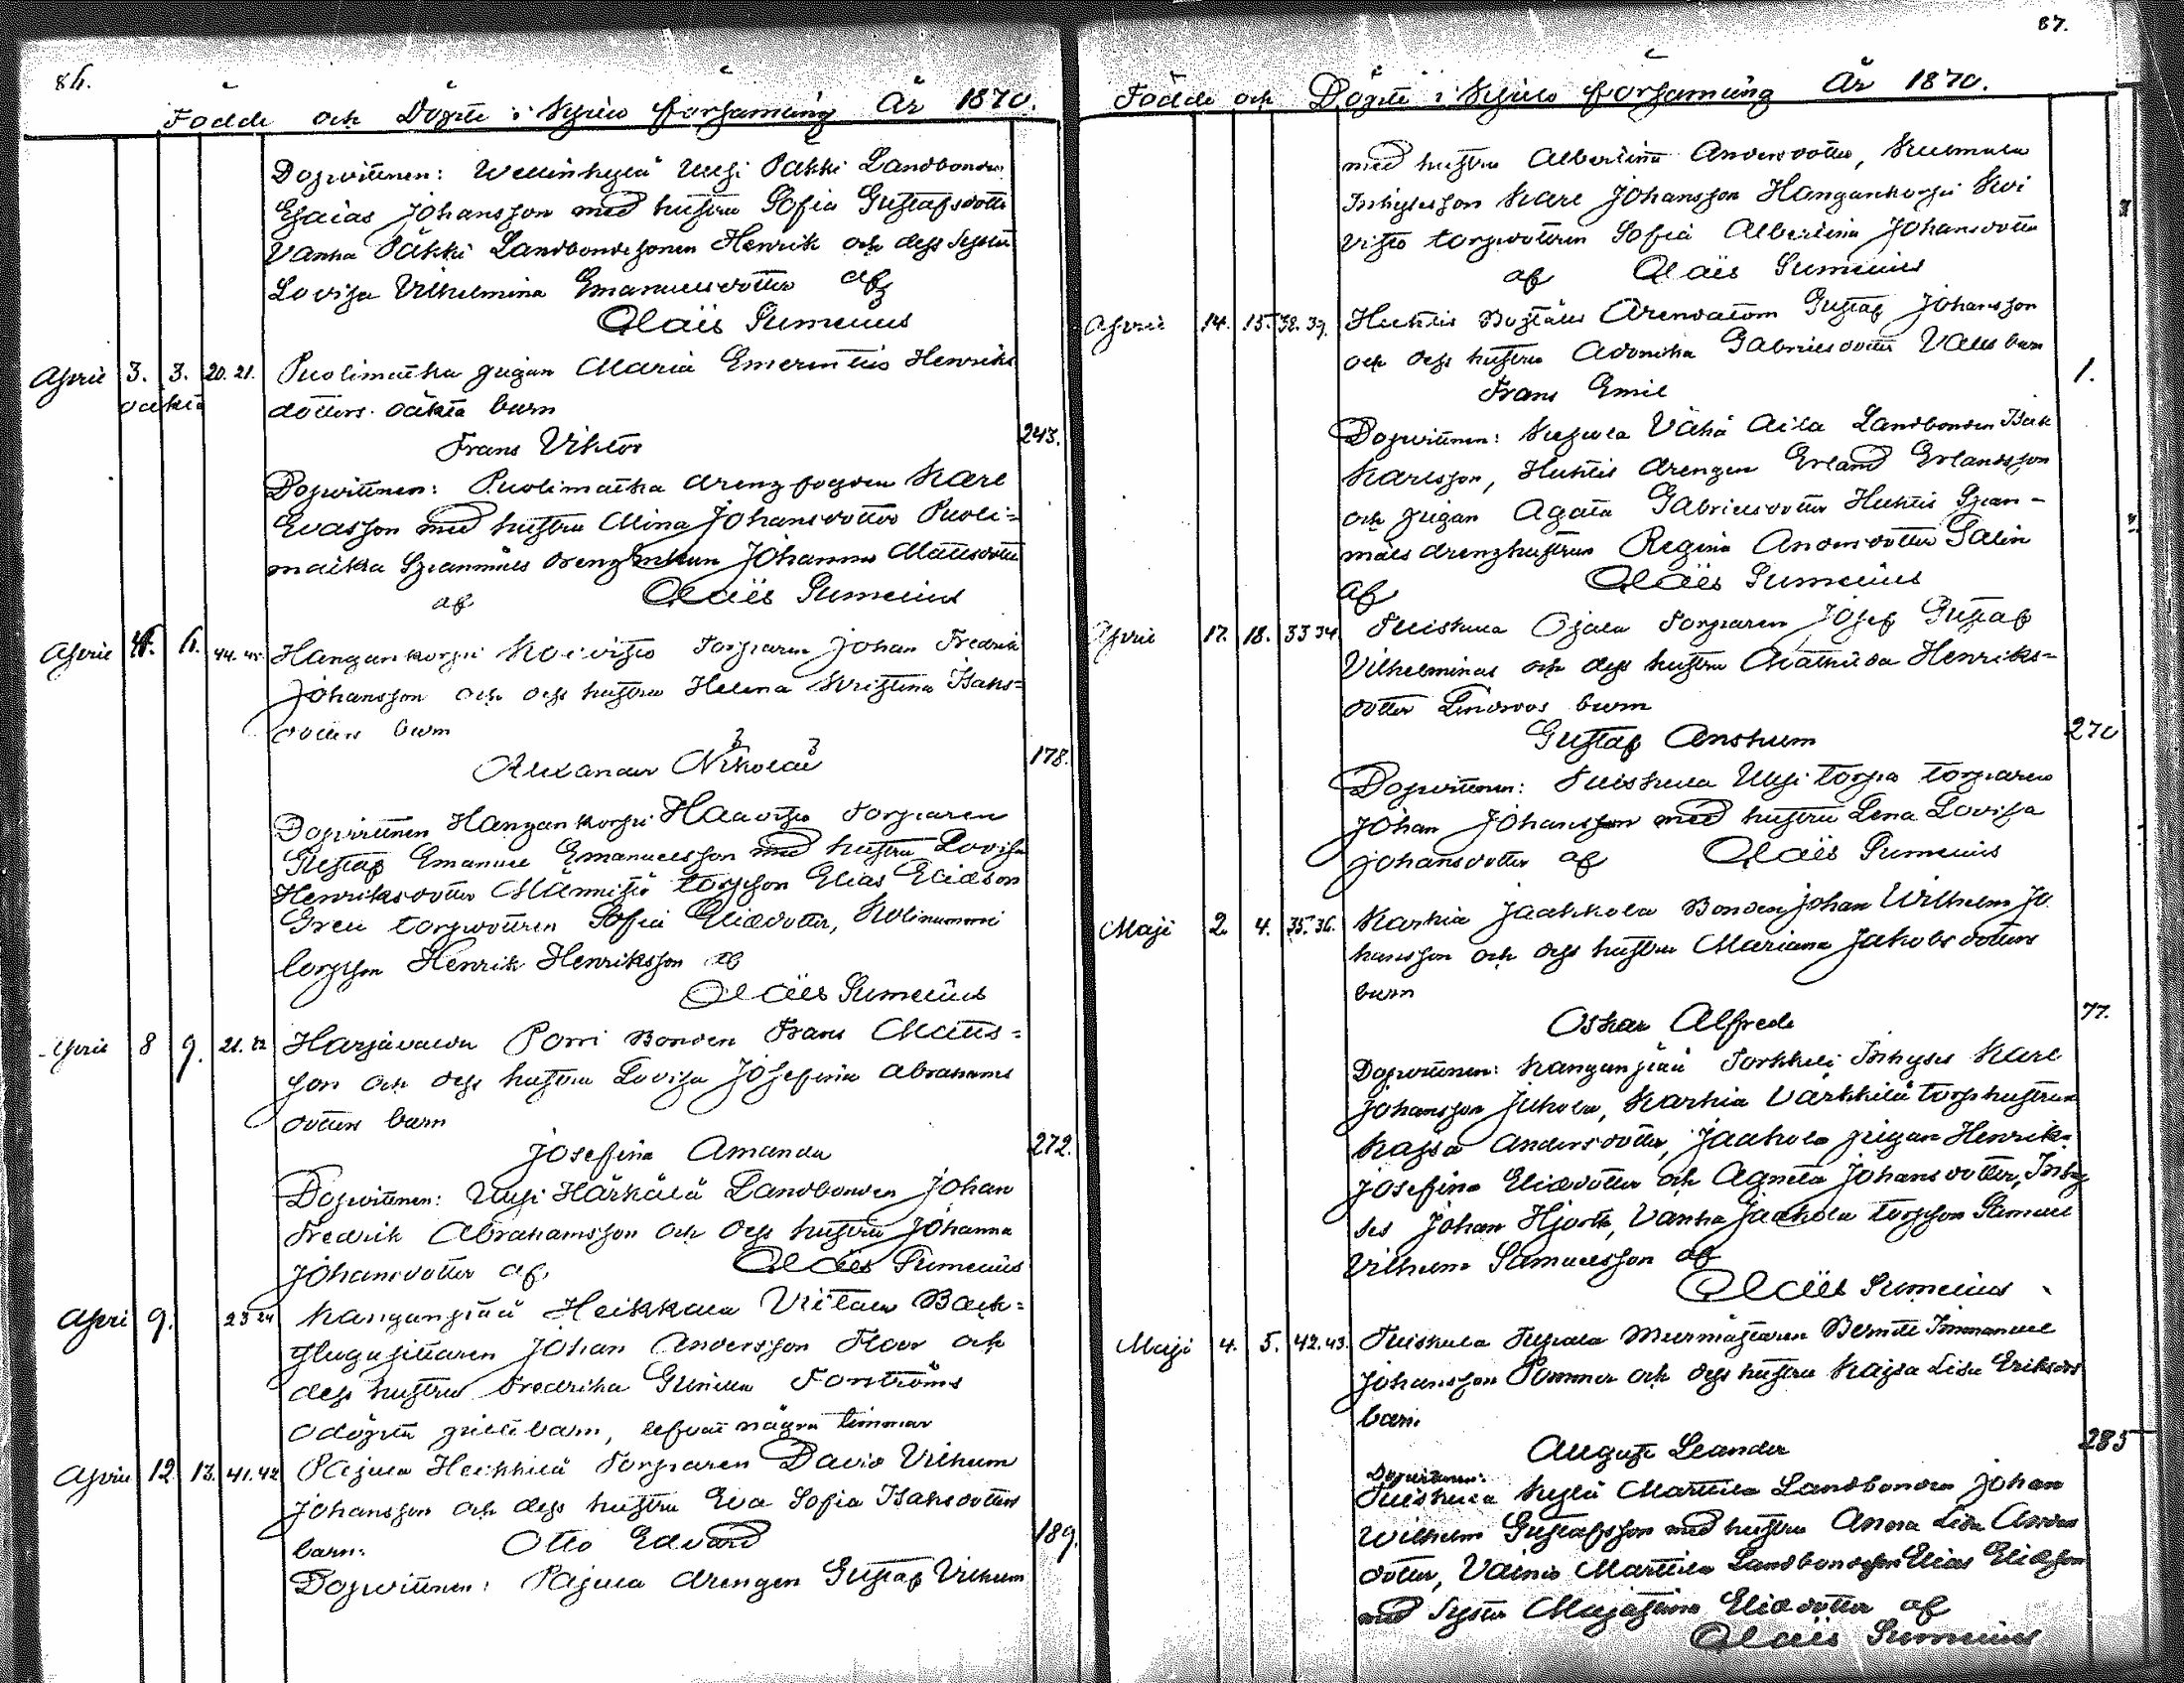 86.
Födde och Döpte i Kjulo församling År 1870.
Dopvittnen: Wellinkylä Uusi Päkki Landbonden
Esaias Johansson med hustru Sofia Gustafsdotter
Vanha Päkki Landbondesonen Henrik och dess Syster
Lovisa Vilhelmina Emanuelsdotter af
Claës Sumelius
April 3. 3. 20. 21. Puolimatka pigan Maria Henriks
oäkta dotters oäkta barn
Frans Viktor
243.
Dopvittnen: Puolimatka drengfogden Karl
Evasson med hustru Mina Johansdotter Puoli=
matka Johanna Mattsdotter
af Claës Sumelius
April 6. 44. 45. Hangankorpi Koivisto Torparen Johan Fredrik
Johansson och dess hustru Helena Kristina Isaks=
dotters barn
Alexander Nikolai
178.
Dopvittnen Hangankorpi Haavisto Torparen
Gustaf Emanuel Emanuelsson med hustru Lovisa
Henriksdotter Männistö torpson Elias Eliasson
torpdottren Sofia Eliædotter, Kolinummi
torpson Henrik Henriksson af
Claës Sumelius
April 8 9. 21. 22 Harjavalda Porri Bonden Frans Matts=
son och dess hustru Lovisa Josefina Abrahams
dotters barn
Josefina Amanda
272.
Dopvittnen: Uusi Härkälä Landbonden Johan
Fredrik Abrahamsson och dess hustru Johanna
Johansdotter af Claës Sumelius
April 9. 23 24 Kanganpää Heikkala Backe=
stugusittaren Johan Andersson Floor och
dess hustru Fredrika Forströms
odöpta barn, lefvat några timmar
April 12. 13. 41. 42 Pajula Heikkilä Torparen David Vilhelm
Johansson och dess hustru Eva Sofia Isaksdotters
barn: Otto Edvard
189.
Dopvittnen: Pajula drengen Gustaf Vilhelm
87.
Födde och Döpte i Kjulo församling År 1870.
med hustru Albertina Andersdotter, Kulmala
Karl Johansson Hangankorpi Koi
visto torpdottren Sofia Albertina Johansdotter
af Claës Sumelius
April 14. 15. 38. 39. Huhtis Boställs Arendatorn Gustaf Johansson
och dess hustru Gabrielsdotter Valls barn
Frans Emil
1.
Dopvittnen: Vähä Aila Landbonden Isak
Karlsson, Huhtis drengen Erland Erlandsson
och pigan Agata Gabrielsdotter Huhtis Span-
måls drenghustrun Regina Andersdotter Salin
af Claës Sumelius
April 17. 18. 33 34 Tuiskula Ojala Torparen Josef Gustaf
Vilhelminas och dess hustru Mathilda Henriks=
dotter Lindroos barn
Gustaf Anshelm
270
Dopvittnen: Tuiskula Uusi torpa torparen
Johan Johansson med hustru Lena Lovisa
Johansdotter af Claës Sumelius
Maji 2. 4. 35. 36. Karhia Jaakkola Bonden Johan Wilhelm Jo
hansson och dess hustru Mariana Jakobsdotters
barn
Oskar Alfred
77.
Dopvittnen: Kanganpää Torkkeli Inhyses Karl
Johansson Juhola, Karhia Värkkilä torphustrun
Kajsa Andersdotter, Jaakola pigan Henrik=
Josefina Eliædotter och Agneta Johansdotter, Inhy
ses Johan Hjorth, Vanha Jaakola torpson Samuel
Vilhelm Samuelsson af
Claës Sumelius
Maji 4. 5. 42. 43. Tuiskula Murmästaren Berndt Immanuel
Johansson Pommer och dess hustru Kajsa Lisa Eriksdrs
barn.
August Leander
285
Dopvittnen:
Tuiskula Kylä Marttila Landbonden Johan
Wilhelm Gustafsson med hustru Anna Lisa Anders
dotter, Vainio Marttila Landbondeson Elias Eliæson
med Syster Majastina Eliædotter af
Claës Sumelius